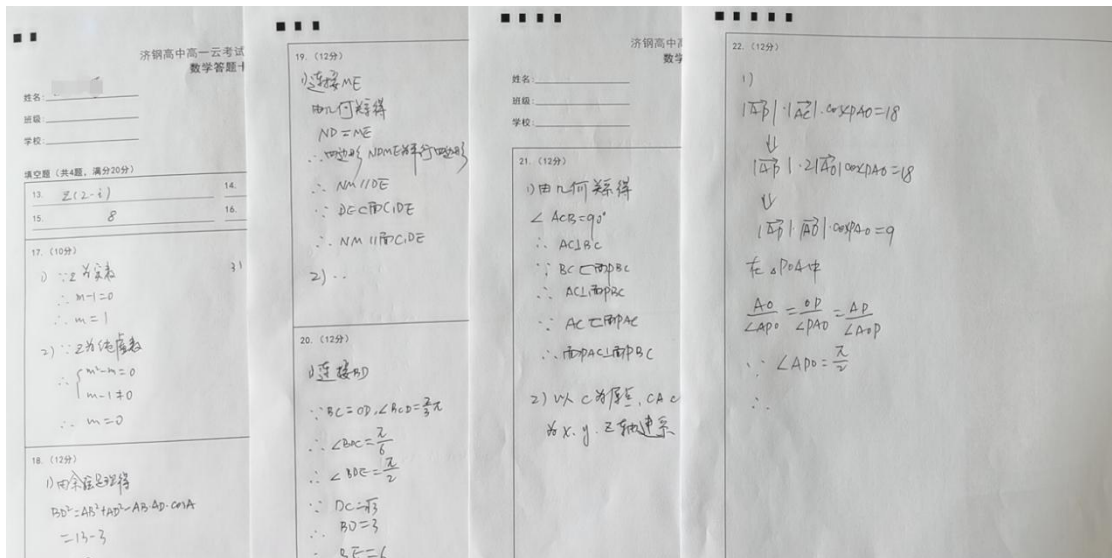 济钢高中高一云考试
数学答题卡
姓名:
班级:
学校:
填空题(共4题,满分20分)
13. 2(2-i)
14.
15. 8
16.
17.(10分)
1) ∵z为实数
∴ m-1=0
∴ m=1
2) ∵z为纯虚数
∴ { m²-m=0
m-1≠0
∴ m=0
3)
18.(12分)
1)由余弦定理得
BD²=AB²+AD²-AB·AD·cosA
=13-3
19.(12分)
1)连接ME
由几何关系得
ND=ME
∴四边形NDME为平行四边形
∴ NM//DE
∵ DE⊂面C₁DE
∴ NM//面C₁DE
2)∵
20.(12分)
1)连接BD
∵BC=OD,∠BCD=2/3π
∴∠BDC=π/6
∴∠BDE=π/2
∵ DC=√3
∴ BD=3
∴ BE=6
济钢高中高
数学
姓名:
班级:
学校:
21.(12分)
1)由几何关系得
∠ACB=90°
∴ AC⊥BC
∵ BC⊂面PBC
∴ AC⊥面PBC
∵ AC⊂面PAC
∴面PAC⊥面PBC
2)以C为原点,CA C
为x.y.z轴建系
22.(12分)
1)
|AP|·|AC|·cos∠PAO=18
⇓
|AP|·2|AO|cos∠PAO=18
⇓
|AP|·|AO|·cos∠PAO=9
在△POA中
AO/∠APO=OP/∠PAO=AP/∠AOP
∵ ∠APO=π/2
∴